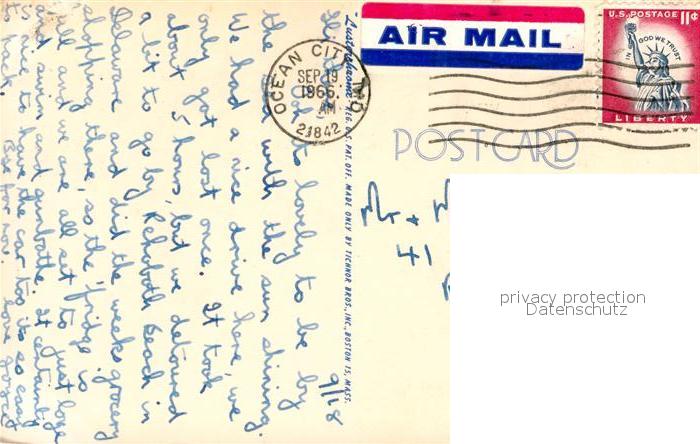 9/18
lovely to be by
the sea with the sun shining.
We had a nice drive here, we
only got lost once. It took
about 5 hours, but we detoured
a bit to go by Rehoboth Beach in
Delaware and did the weeks grocery
shopping there, so the 'fridge is
full and we are all set to just loaf
and swim and sunbathe. It certainly
is nice to have the car too its so easy
Bye for now. love
Lusterchrome REG. U.S. PAT. OFF. MADE ONLY BY TICHNOR BROS., INC., BOSTON 15, MASS.
AIR MAIL
OCEAN CITY, MD.
SEP 19
1966
AM
21842
U.S. POSTAGE 11¢
IN GOD WE TRUST
LIBERTY
POST CARD
Mr +
41
privacy protection
Datenschutz